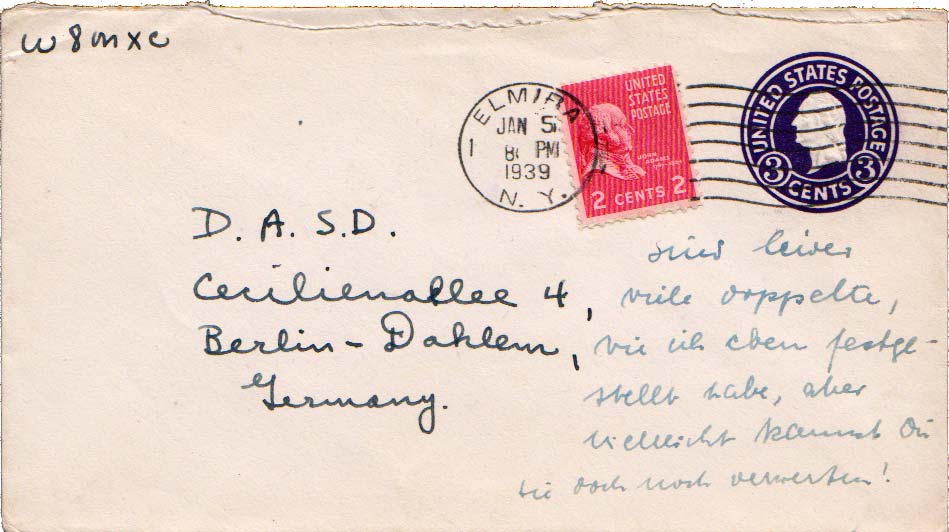 W8MXC
ELMIRA
JAN 5
8 PM
1939
N. Y.
1
UNITED
STATES
POSTAGE
JOHN
ADAMS
2 CENTS 2
UNITED STATES POSTAGE
3 CENTS 3
D. A. S. D.
Cecilienallee 4,
Berlin-Dahlem,
Germany.
sind leider
viele doppelte,
wie ich eben festge-
stellt habe, aber
vielleicht kannst Du
sie doch noch verwerten!